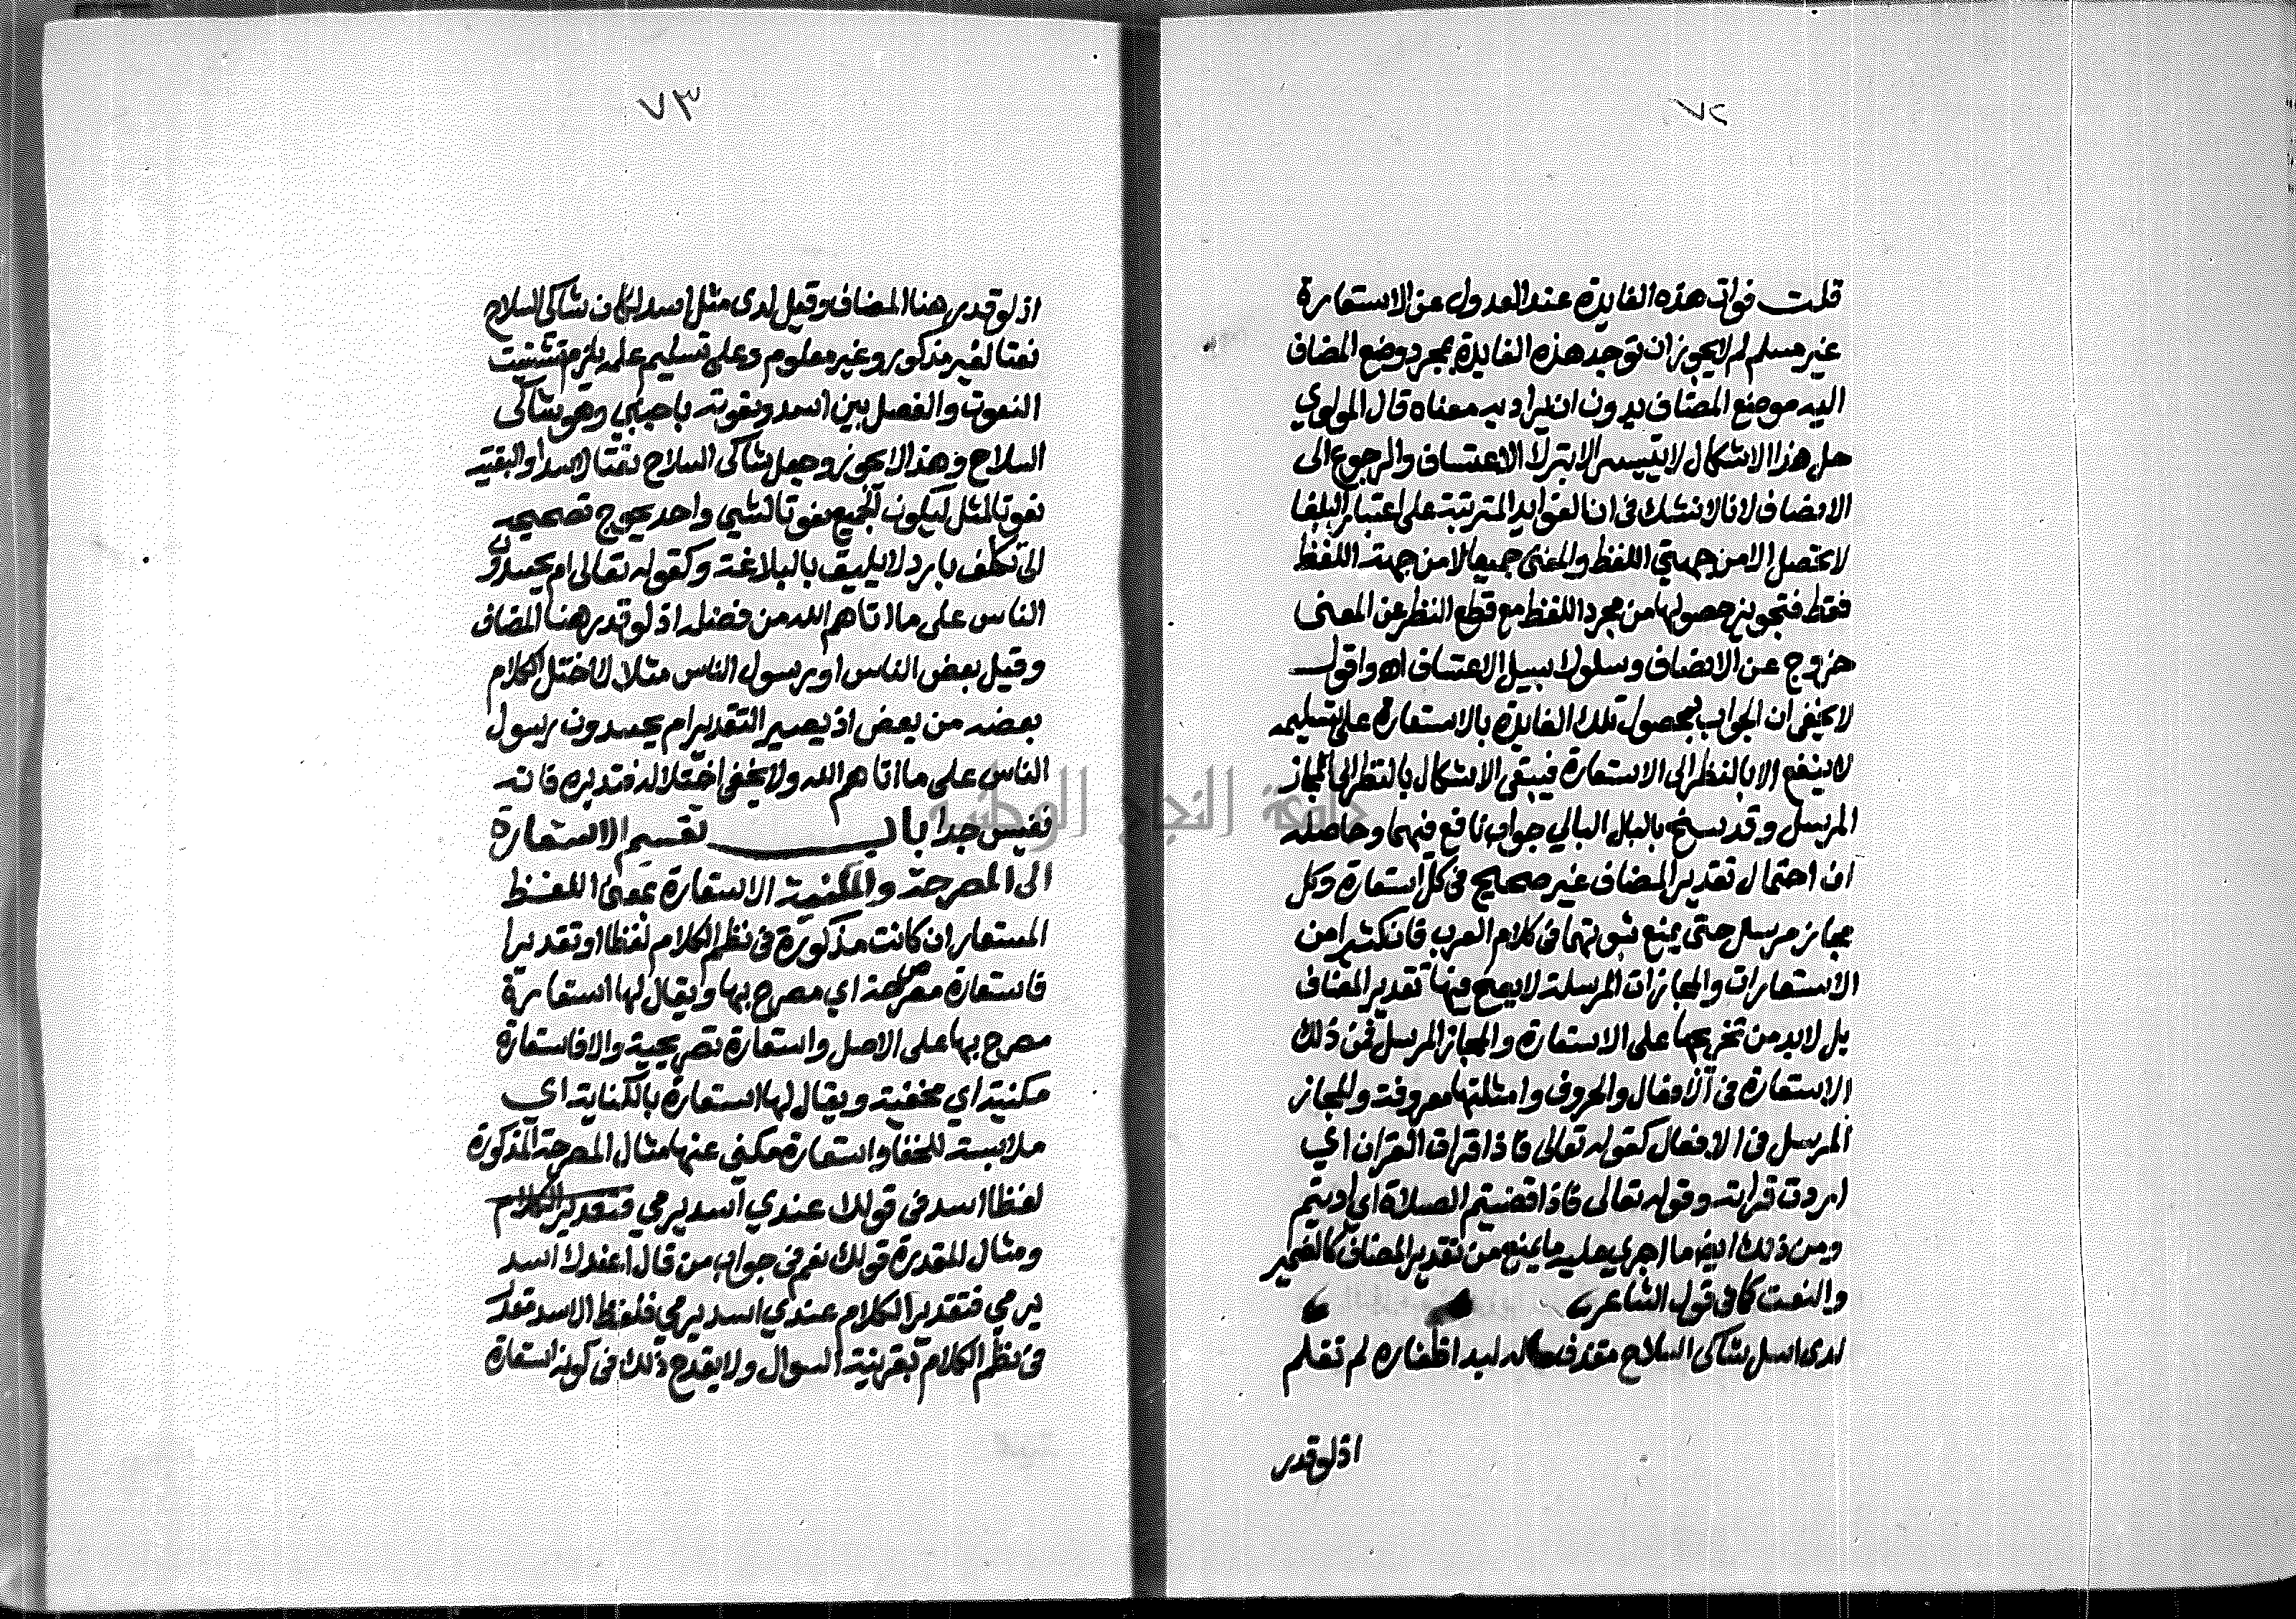 ٧٢
قلت فوات هذه الفايدة عند العدول عن الاستعارة
غير مسلم لم لا يجوز ان توجد هذه الفايدة بمجرد وضع المضاف
اليه موضع المضاف بدون ان يراد به معناه قال المولوي
حل هذا الاشكال لا يتيسر الا بترك الاعتساف والرجوع الى
الانصاف لانا لا نشك في ان الفوايد المترتبة على اعتبار البلغا
لا تحصل الا من جهتي اللفظ والمعنى جميعا لا من جهة اللفظ
فقط فتجويز حصولها من مجرد اللفظ مع قطع النظر عن المعنى
خروج عن الانصاف وسلوك سبيل الاعتساف اه واقول
لا يخفى ان الجواب بحصول تلك الفايدة بالاستعارة على تسليمه
لا ينفع الا بالنظر الى الاستعارة فيبقى الاشكال بالنظر الى المجاز
المرسل وقد سنح بالبال البالي جواب نافع فيهما وحاصله
ان احتمال تقدير المضاف غير صحيح في كل استعارة وكل
مجاز مرسل حتى يمنع ثبوتهما في كلام العرب فان كثيرا من
الاستعارات والمجازات المرسلة لا يصح فيها تقدير المضاف
بل لا بد من تخريجها على الاستعارة والمجاز المرسل فمن ذلك
الاستعارة في الافعال والحروف وامثلتها معروفة والمجاز
المرسل في الافعال كقوله تعالى فاذا قرات القران اي
اردت قراءته وقوله تعالى فاذا قضيتم الصلاة اي اديتم
ومن ذلك ايضا ما اجري عليه ما يمنع من تقدير المضاف كالضمير
والنعت كما في قول الشاعر
لدى اسل شاكى السلاح مقذف له لبد اظفاره لم تقلم
اذ لو قدر
٧٣
اذ لو قدر هنا المضاف وقيل لدى مثل اسد لكان شاكى السلاح
نعتا لغير مذكور وغير معلوم وعلى تسليم علمه يلزم تشتت
النعوت والفصل بين اسد ونعوته باجنبي وهو شاكى
السلاح وهذا لا يجوز وجعل شاكى السلاح نعتا لاسد والبقية
نعوتا لمثل ليكون الجميع نعوتا لشي واحد يحوج تصحيحه
الى تكلف بارد لا يليق بالبلاغة وكقوله تعالى ام يحسدون
الناس على ما اتاهم الله من فضله اذ لو قدر هنا المضاف
وقيل بعض الناس او رسول الناس مثلا لاختل الكلام
بعضه من بعض اذ يصير التقدير ام يحسدون رسول
الناس على ما اتاهم الله ولا يخفى اختلاله فتدبره فانه
نفيس جدا باب تقسيم الاستعارة
الى المصرحة والمكنية الاستعارة بمعنى اللفظ
المستعار ان كانت مذكورة في نظم الكلام لفظا او تقديرا
فاستعارة مصرحة اي مصرح بها ويقال لها استعارة
مصرح بها على الاصل واستعارة تصريحية والا فاستعارة
مكنية اي مخفية ويقال لها استعارة بالكناية اي
ملابسة للخفا واستعارة مكنى عنها مثال المصرحة المذكورة
لفظا اسد في قولك عندي اسد يرمي فتقدير الكلام
ومثال المقدرة قولك نعم في جواب من قال اعندك اسد
يرمي فتقدير الكلام عندي اسد يرمي فلفظ الاسد مقدر
في نظم الكلام بقرينة السوال ولا يقدح ذلك في كونه استعارة
جامعة النجاح الوطنية